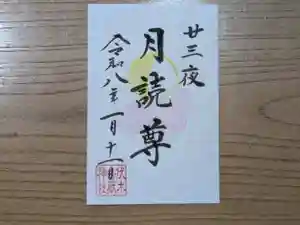 廿三夜
月読尊
令和八年一月十一日